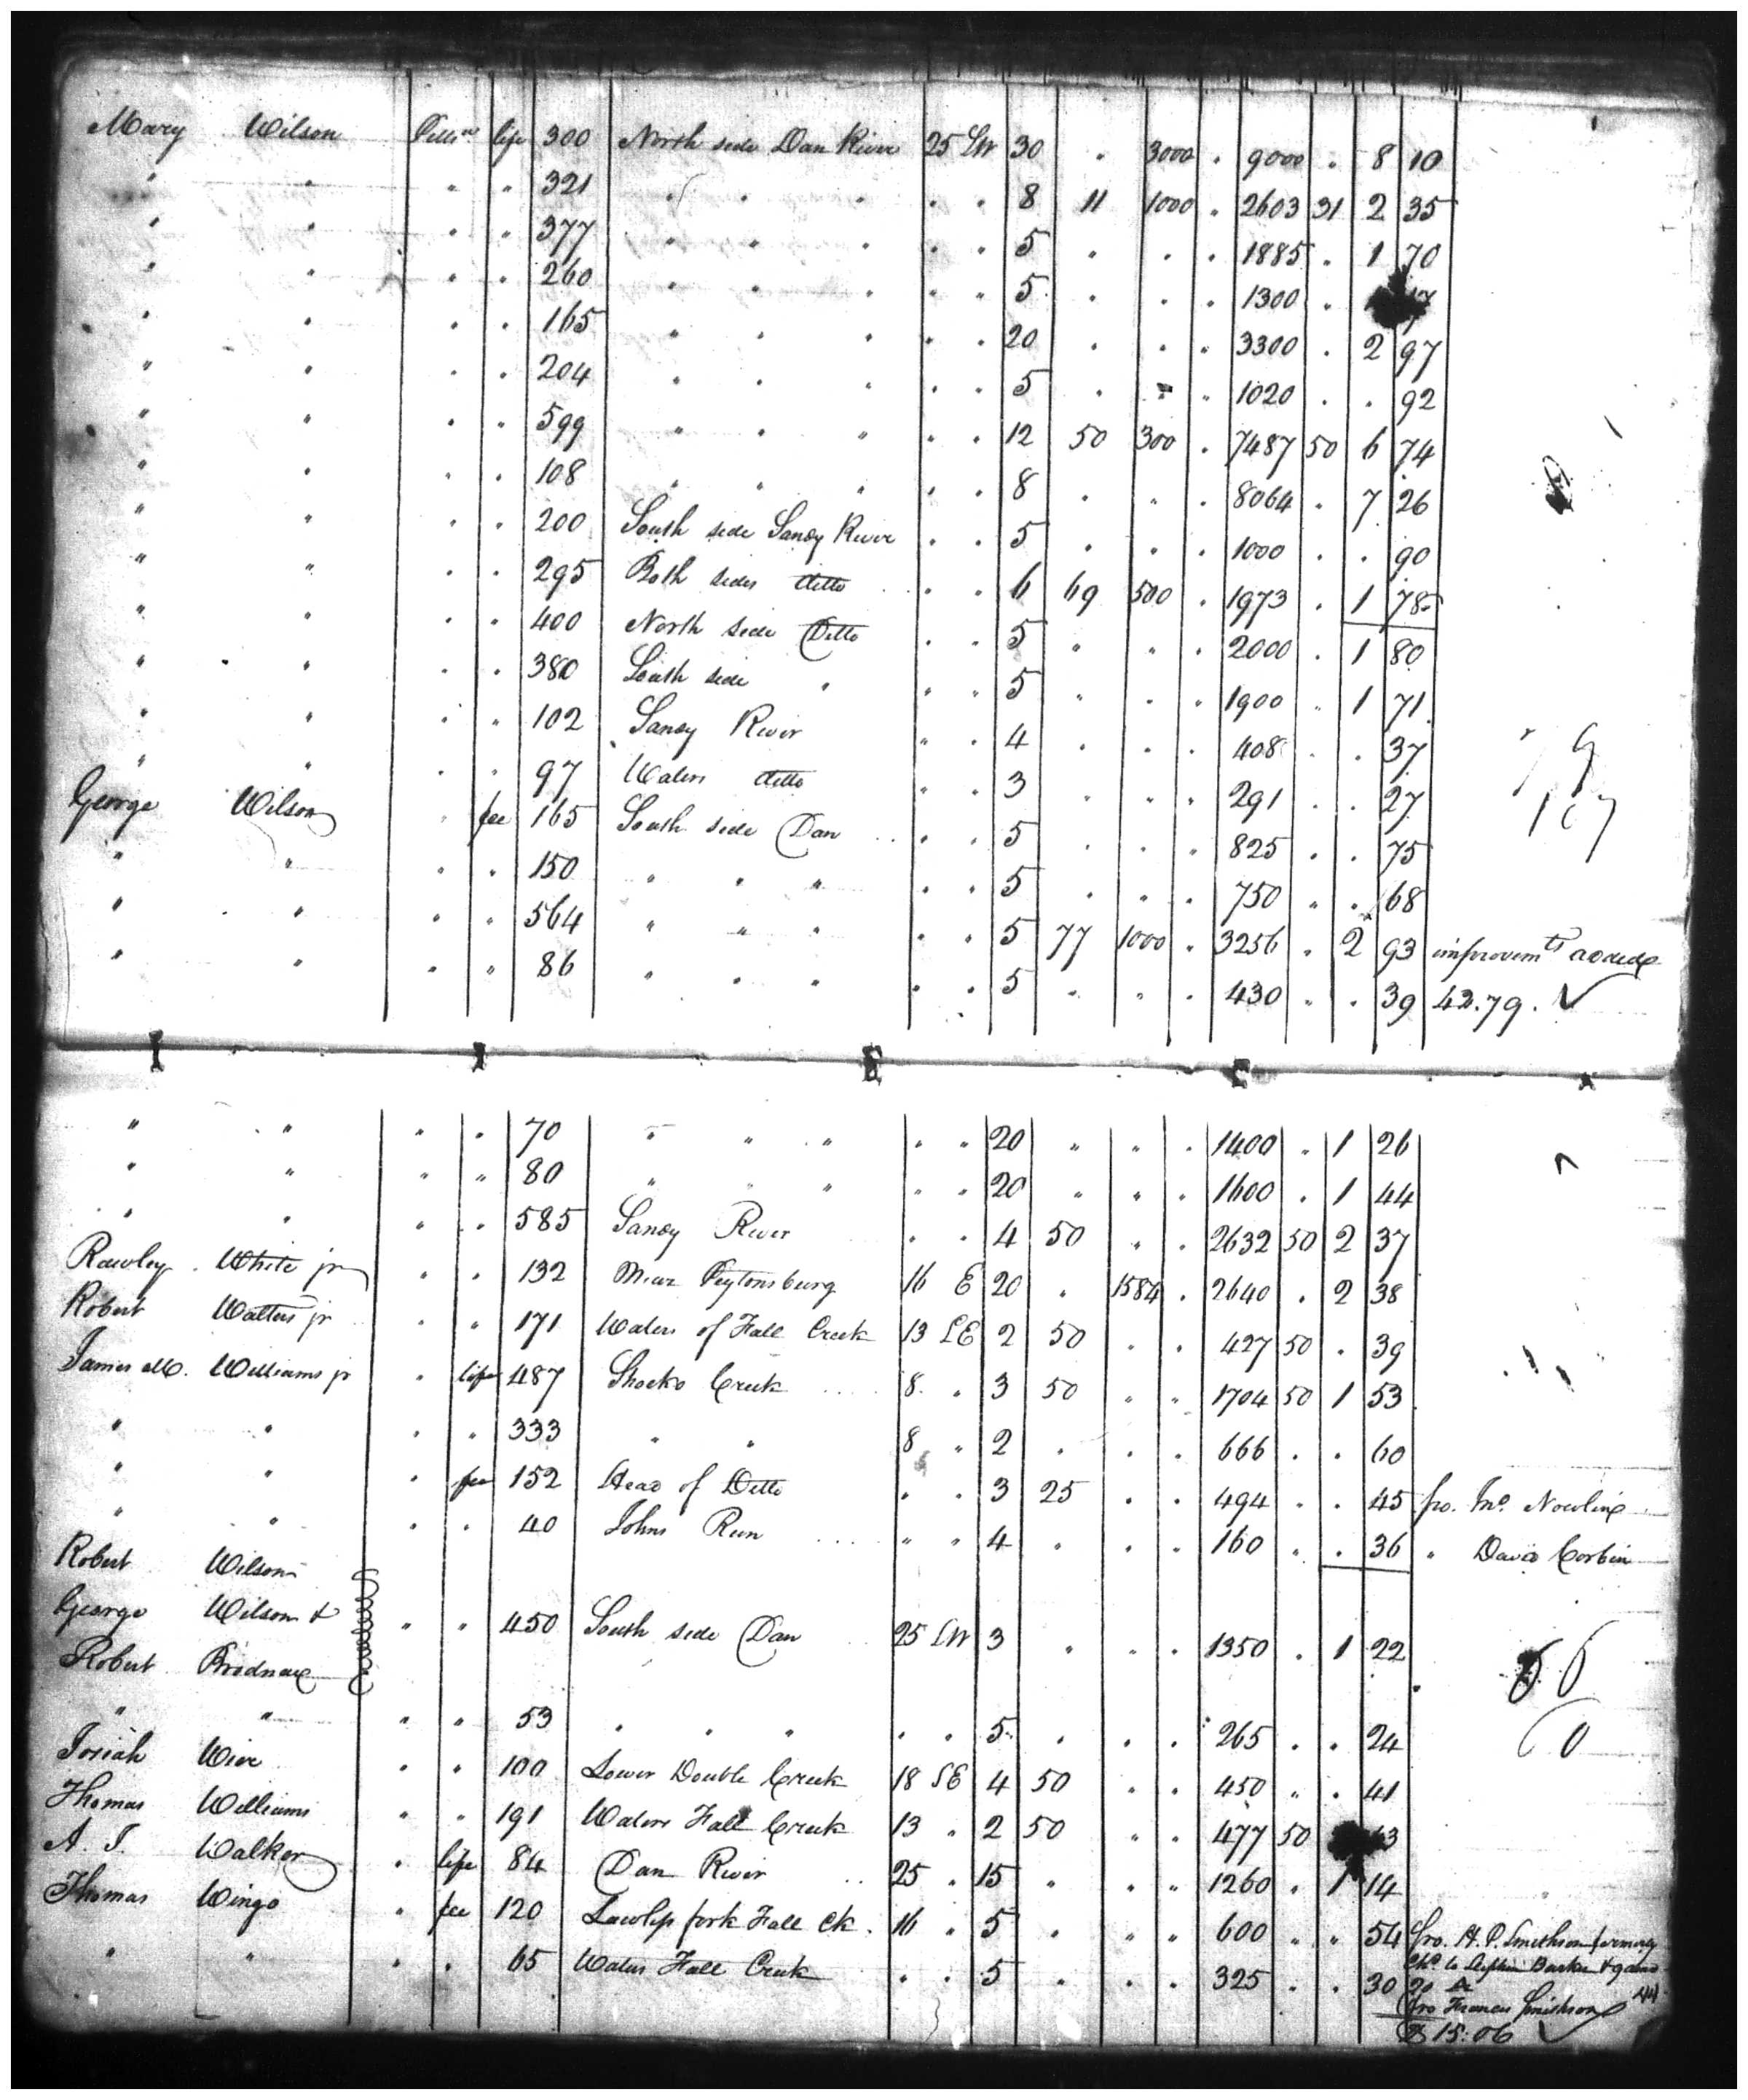 Mary Wilson Pittsa life 300 North side Dan River 25 SW 30 " 3000 " 9000 " 8 10
" " " " 321 " " " " " 8 11 1000 " 2603 31 2 35
" " " " 377 " " " " " 5 " " " 1885 " 1 70
" " " " 260 " " " " " 5 " " " 1300 " 17
" " " " 165 " " " " " 20 " " " 3300 " 2 97
" " " " 204 " " " " " 5 " " " 1020 " " 92
" " " " 599 " " " " " 12 50 300 " 7487 50 6 74
" " " " 108 " " " " " 8 " " " 8064 " 7 26
" " " " 200 South side Sandy River " " 5 " " " 1000 " " 90
" " " " 295 Both sides ditto " " 6 69 500 " 1973 " 1 78
" " " " 400 North side Ditto " " 5 " " " 2000 " 1 80
" " " " 380 South side " " " 5 " " " 1900 " 1 71
" " " " 102 Sandy River " " 4 " " " 408 " " 37
" " " " 97 Waters ditto " " 3 " " " 291 " " 27
George Wilson " fee 165 South side Dan " " 5 " " " 825 " " 75
" " " " 150 " " " " " 5 " " " 750 " " 68
" " " " 564 " " " " " 5 77 1000 " 3256 " 2 93 improvemts added
" " " " 86 " " " " " 5 " " " 430 " " 39 42.79. ✓
" " " " 70 " " " " " 20 " " " 1400 " 1 26
" " " " 80 " " " " " 20 " " " 1600 " 1 44
" " " " 585 Sandy River " " 4 50 " " 2632 50 2 37
Rawley White jr " " 132 Near Peytonsburg 16 E 20 " 1584 " 2640 " 2 38
Robert Walters jr " " 171 Waters of Fall Creek 13 SE 2 50 " " 427 50 " 39
James M. Williams jr " life 487 Shocko Creek 8 " 3 50 " " 1704 50 1 53
" " " " 333 " " 8 " 2 " " " 666 " " 60
" " " fee 152 Head of Ditto " " 3 25 " " 494 " " 45 fro. Jno. Nowling
" " " " 40 Johns Run " " 4 " " " 160 " " 36 " David Corbin
Robert Wilson
George Wilson & " " 450 South side Dan 25 SW 3 " " " 1350 " 1 22
Robert Brodnax
" " " " 53 " " " " " 5 " " " 265 " " 24
Josiah Wier " " 100 Lower Double Creek 18 SE 4 50 " " 450 " " 41
Thomas Williams " " 191 Waters Fall Creek 13 " 2 50 " " 477 50 43
A. J. Walker " life 84 Dan River 25 " 15 " " " 1260 " 1 14
Thomas Wingo " fee 120 fork Fall Ck. 16 " 5 " " " 600 " " 54 fro. H. P. Smithson formerly
chd to Barker &
" " " " 65 Waters Fall Creek " " 5 " " " 325 " " 30
fro Francis Smithson 44
$ 15.06 ✓